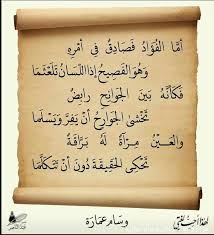 أمَّا الفُؤَادُ فَصَادِقٌ فِي أمْرِهِ
وَهُوَ الفَصِيحُ إذا اللسَانُ تَلَعْثَمَا
فَكَأنَّهُ بَيْنَ الجَوَانِحِ رابِضٌ
تَخْشَى الجَوَارِحُ أنْ يَفِرَّ وَيَسْأمَا
والعَيْنُ مِرْآةٌ لَهُ بَرَّاقَةٌ
تَحْكِي الحَقِيقَةَ دُونَ أنْ تَتَكَلَّمَا
وسَام عمَارَة